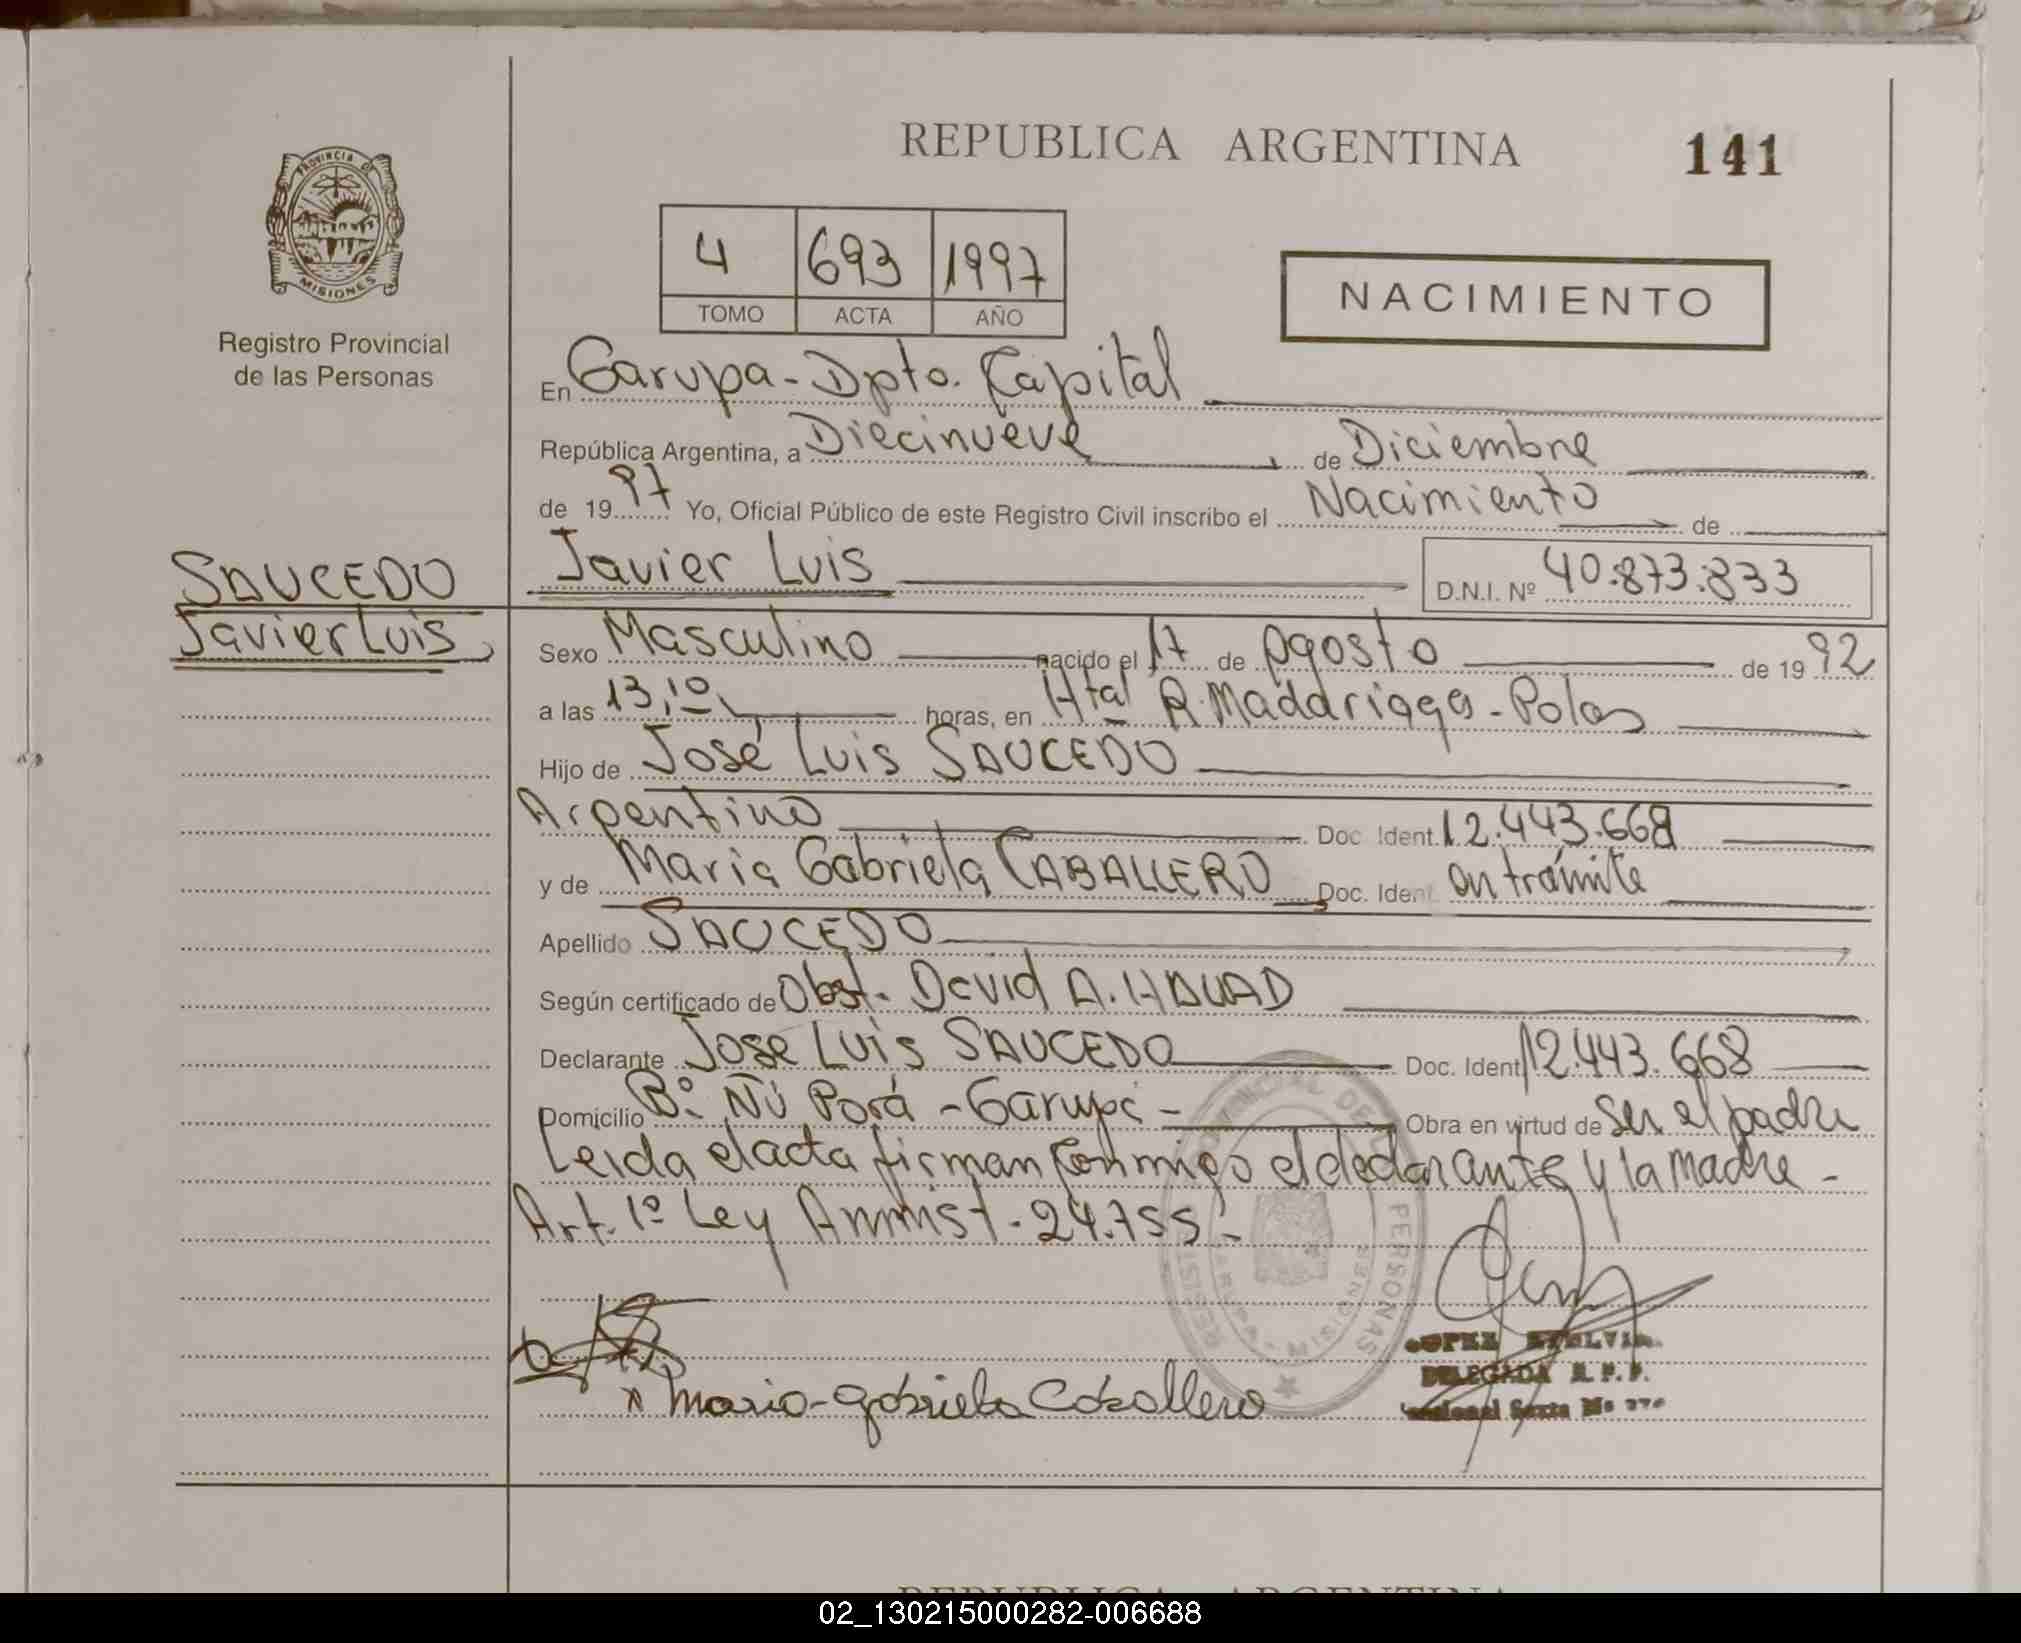 REPUBLICA ARGENTINA
141
PROVINCIA DE
MISIONES
Registro Provincial
de las Personas
4 693 1997
TOMO ACTA AÑO
NACIMIENTO
En Garupa - Dpto. Capital
República Argentina, a Diecinueve de Diciembre
de 1997 Yo, Oficial Público de este Registro Civil inscribo el Nacimiento de
SAUCEDO
Javier Luis
Javier Luis D.N.I. Nº 40.873.833
Sexo Masculino nacido el 17 de Agosto de 1992
a las 13,10 horas, en Htal R. Madariaga - Pdas
Hijo de José Luis SAUCEDO
Argentino Doc. Ident. 12.443.668
y de Maria Gabriela CABALLERO Doc. Ident. en trámite
Apellido SAUCEDO
Según certificado de Obst. David A.
Declarante Jose Luis SAUCEDO Doc. Ident. 12.443.668
Domicilio Bº Ñú Porá - Garupá - Obra en virtud de ser el padre
Leida el acta firman conmigo el declarante y la madre -
Art. 1º Ley Amnist. 24.755 -
REGISTRO PROVINCIAL DE LAS PERSONAS
GARUPA - MISIONES
DELEGADA R. P. P.
x Maria Gabriela Caballero
REPUBLICA ARGENTINA
02_130215000282-006688